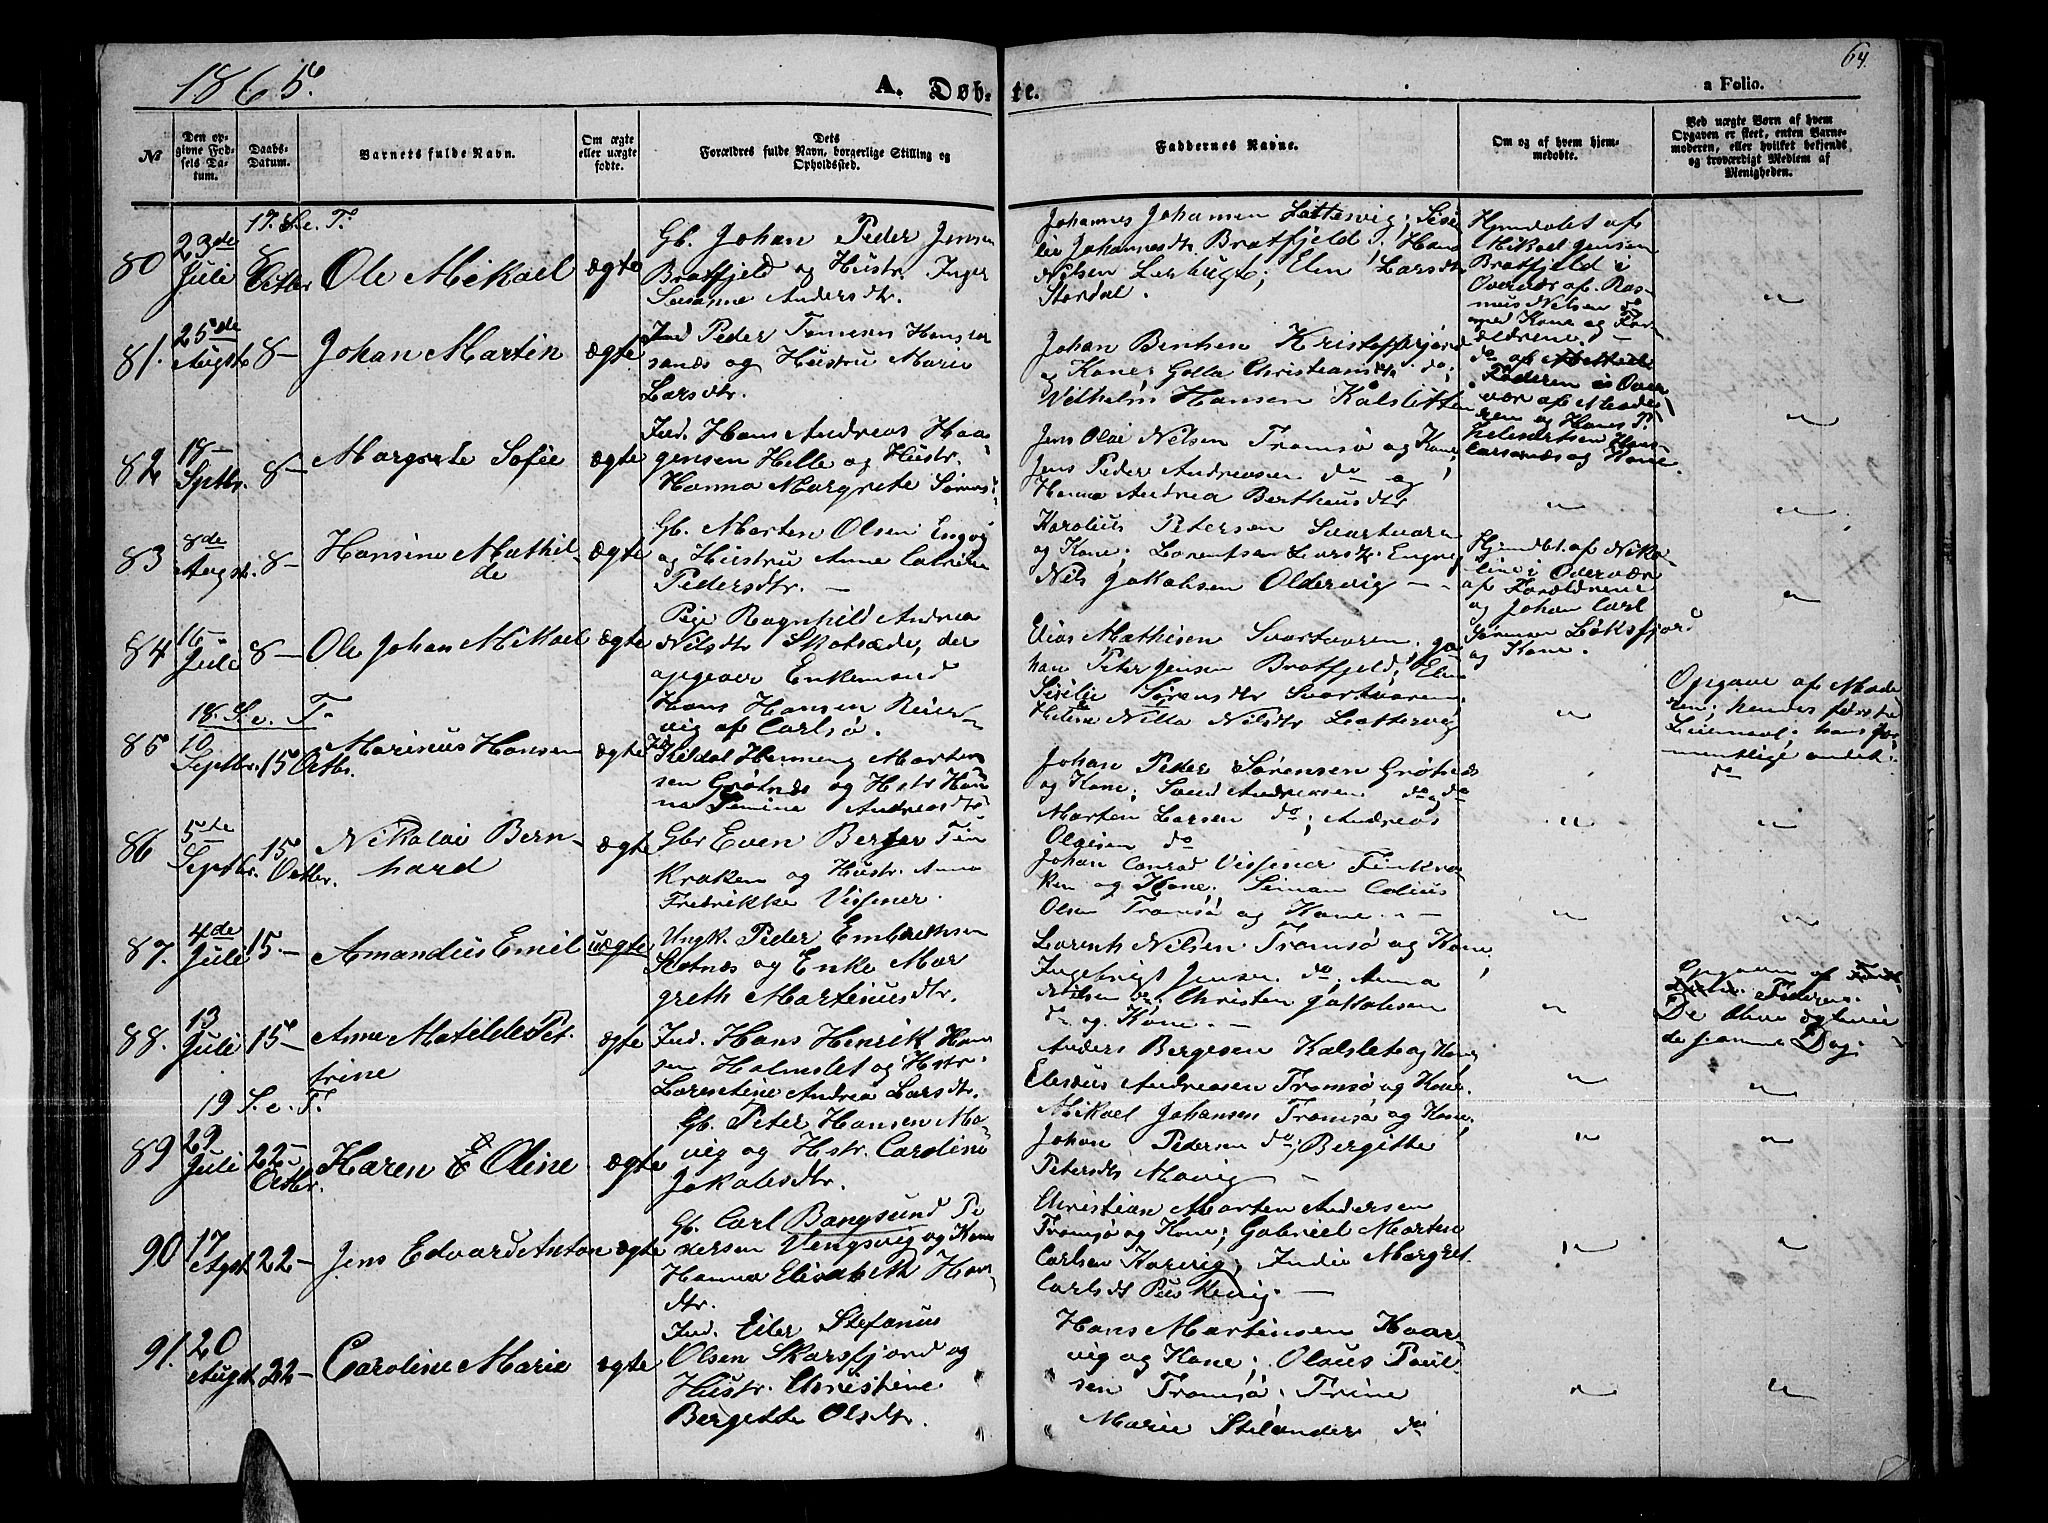 1865.
A. Døbte.
64.
a Folio.
No
Den opgivne Fødsels Datum.
Daabs-Datum.
Barnets fulde Navn.
Om ægte eller uægte fødte.
Dets Forældres fulde Navn, borgerlige Stilling og Opholdssted.
Faddernes Navne.
Om og af hvem hjemmedøbte.
Ved uægte Børn af hvem Opgaven er skeet, enten Barnemoderen, eller hvilket bekjendt og troværdigt Medlem af Menigheden.
17. S. e. T.
80 23de Juli 8 Octbr Ole Mikael ægte
Gb. Johan Peder Jensen
Bratfjeld og Hustr. Inger
Susanna Andersdtr.
Johannes Johansen Lattervig;
Johannesdtr Bratfjeld; Hans
Nilsen Lerbugt; Elen Larsdtr
Stordal.
Hjemdøbt af
Mikael Jensen
Bratfjeld i
Overvær af Ras-
mus Nilsen do
med Kone og For-
ældrene.
81. 25de Augst 8- Johan Martin ægte
Ind Peder Tomesen Hans lar
snæs og Hustru Marie
Larsdtr.
Johan Benhsen
og Kone; Golla Christiansdtr. do;
Vilhelm Hansen Kalsletten
do af
Faderen i Over
vær af Mode
ren og Hans P.
og Kone.
82 18- Sptbr. 8- Margrete Sofie ægte
Ind. Hans Andreas Haa-
gensen Helle og Hustr.
Hanna Margrete
Jens Olai Nilsen Tromsø og Kone;
Jens Peder Andreasen do og
Hanna Andrea Bertheusdtr
83 8de Augst. 8- Hansine Mathil-
de ægte
Gb. Morten Olsen Engvig
og Hustru Anne Catrine
Pedersdtr. -
Karolius Petersen Svartvaren
og Kone; Lorentsen Engvig
Nils Jakobsen Oldervig - -
Hjemdbt. af Niko-
line i Overvær
af Forældrene
og Johan Carl
Sørensen Løksfjord
og Kone.
84 16- Juli 8- Ole Johan Mikael ægte
Pige Ragnhild Andrea
Nilsdtr Skatsæde, der
opgiver Enkemand
Hans Hansen
vig af Carlsø.
Elias Mathisen Svartvaren; Jo
han Peter Jensen Bratfjeld; Elen
Sisilie Sørensdtr Svartvaren
Helene Nilla Nilsdtr Lattervig
Opgave af Mode
ren; hennes første
Leiermaal; hans for-
mentlige andet.
do
18. S. e. T.
85 10 Septbr. 15 Octbr. Marinus Hansen ægte
Kildal Henning Morten
sen Grøtnæs og Hstr Han
na Andreasdtr
Johan Peder Sørensen Grøtnæs
og Kone; Andreasen do og do
Morten Larsen do; Andreas
Olaisen do
86 5te Septbr. 15 Octbr. Nikolai Bern-
hard ægte
Gbr Even Berger Fin
kroken og Hustr. Anna
Fredrikke Vissner.
Johan Conrad Vissener Finkro
ken og Kone; Siman
Olsen Tromsø og Kone. -
87. 4de Juli 15- Amandus Emil uægte
Ungk. Peder
Slotnæs og Enke Mar
greth Martinusdtr.
Lorents Nilsen Tromsø og Kone;
Ingebrigt Jensen do; Anna
Nilsen og Christen Jakobsen
do og Kone. -
Opgaven af
Faderen.
De blive ægteviede
samme Dag.
88. 13 Juli 15- Anne Matilde Pet-
trine ægte
Ind. Hans Henrik Han
sen Holmslet og Hstr.
Lorentine Andrea Larsdtr.
Anders Bergesen Kalslet og Kone;
Elesæus Andreasen Tromsø og Kone.
19 S. e. T.
89 29 Juli 22- Octbr. Karen Oline ægte
Gb. Peter Hansen Mo-
vig og Hstr. Caroline
Jakobsdtr.
Mikael Johansen Tromsø og Kone;
Johan Pedersen do; Bergitte
Petersdtr Movig -
90 17 Agst 22- Jens Edvard Anton ægte
Gb. Carl Bangsund Pe
dersen Vengsvig og Kone
Hanna Elisabeth Hans
dtr.
Christian Morten Andersen
Tromsø og Kone; Gabriel Morten
Carlsen Kaarvig; Margret
Carlsdt -
91. 20 Augst 22- Caroline Marie ægte
Ind. Eiler Stefanus
Olsen Skarsfjord og
Hustr. Christine
Bergitte Olsdtr.
Hans Martinsen Kaar-
vig og Kone; Olaus Paul
sen Tromsø; Trine
Marie Stelander do